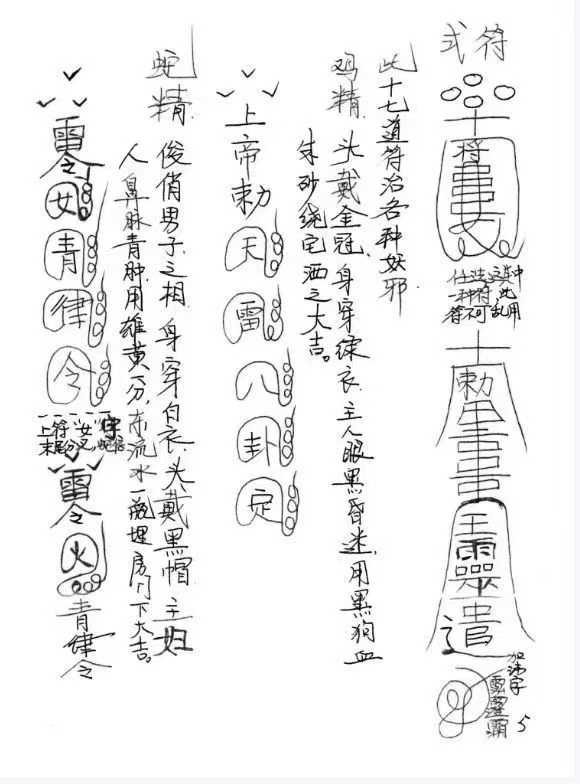 符式
将
仕造符这其中
一种符,此
符不可乱用
勅
王靈遣
5
此十七道符治各种妖邪
鸡精.头戴金冠.身穿绿衣.主人眼黑昏迷,用黑狗血
朱砂绕宅洒之大吉。
上帝勅天雷八卦定
蛇精.俊俏男子之相.身穿白衣、头戴黑帽.主妇
人鼻脉青肿.用雄黄一分,东流水一瓶埋房门下大吉。
雷令女青律令
上符"女"字
雷令火青律令